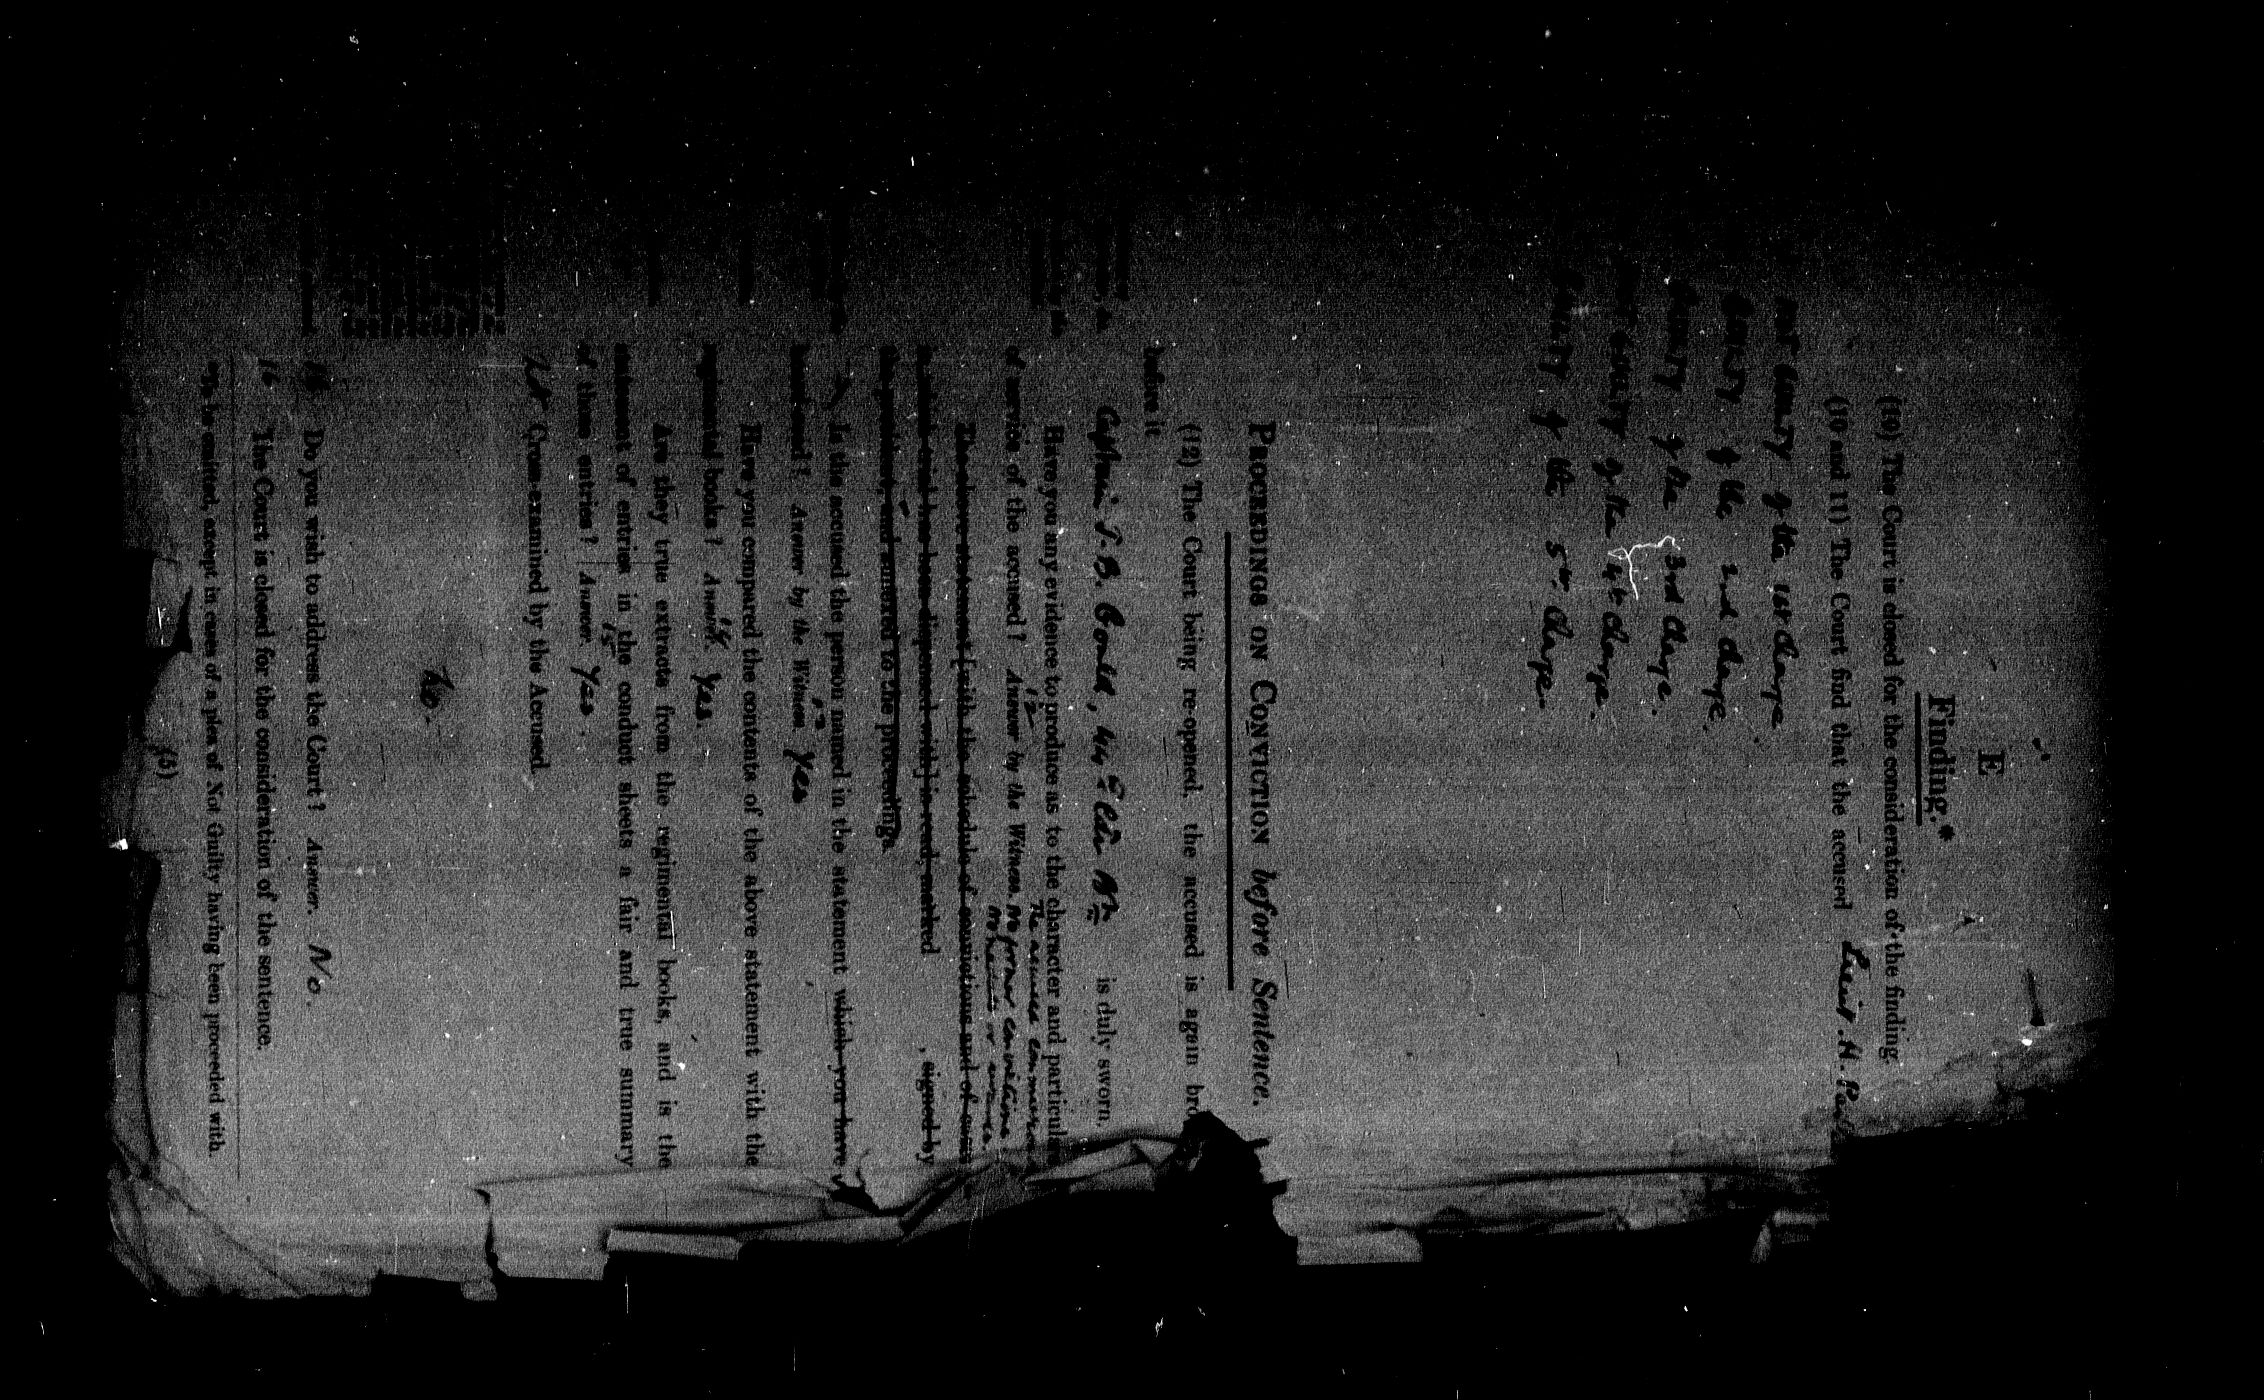 E
Finding.*
(10) The Court is closed for the consideration of the finding.
(10 and 11) The Court find that the accused Lieut. H.
NOT GUILTY of the 1st charge
GUILTY of the 2nd charge.
GUILTY of the 3rd charge.
NOT GUILTY of the 4th charge.
GUILTY of the 5th charge.
PROCEEDINGS ON CONVICTION before Sentence.
(12) The Court being re-opened, the accused is again bro
before it
Captain J. B. is duly sworn.
Have you any evidence to produce as to the character and particulars
of service of the accused? 12 Answer by the Witness. The accused
No former convictions
The above statement [with the schedule of convictions and of
dispensed with] is read, marked , signed by
and annexed to the proceedings.
Is the accused the person named in the statement which you have
heard read? Answer by the Witness 13 Yes
Have you compared the contents of the above statement with the
regimental books? Answer 14 Yes.
Are they true extracts from the regimental books, and is the
statement of entries in the conduct sheets a fair and true summary
of those entries? Answer. 15 Yes.
Cross-examined by the Accused.
No.
Do you wish to address the Court? Answer. No.
16 The Court is closed for the consideration of the sentence.
*To be omitted, except in cases of a plea of Not Guilty having been proceeded with
(5)